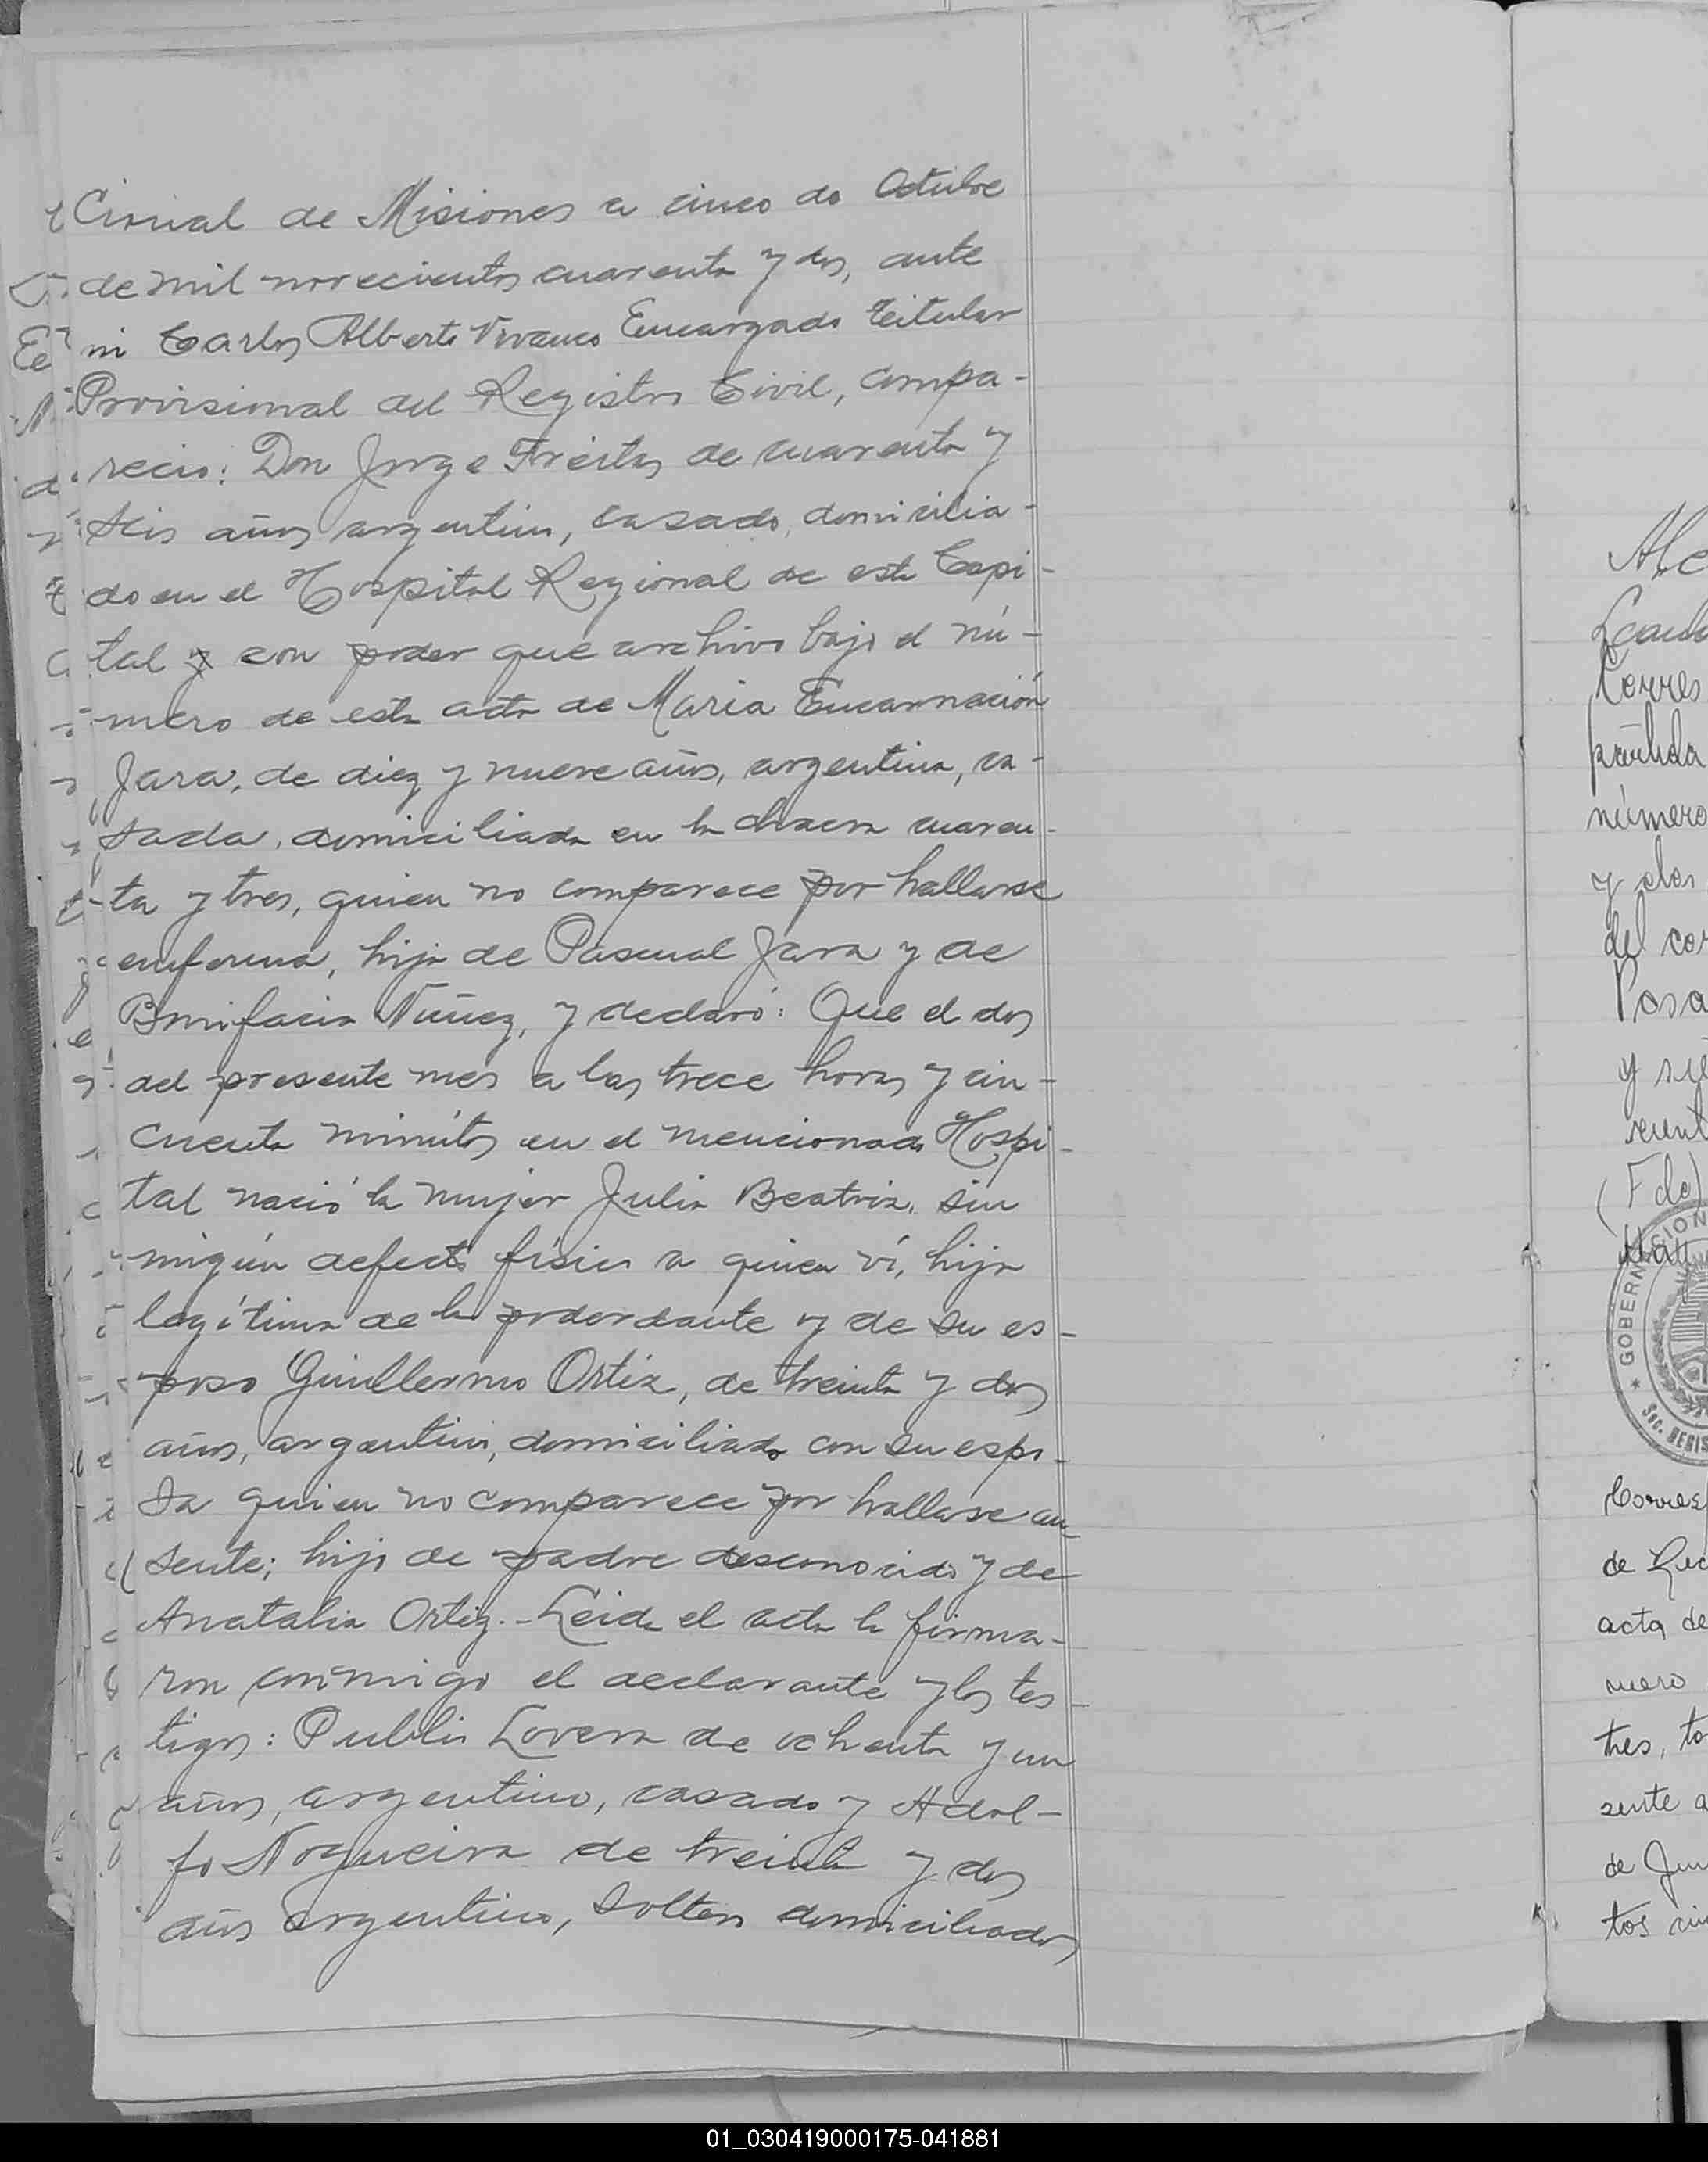 cional de Misiones a cinco de Octubre
de mil novecientos cuarenta y dos, ante
mi Carlos Alberto Vivanco Encargado Titular
Provisional del Registro Civil, compa-
recio: Don Jorge Freitas de cuarenta y
seis años argentino, casado, domicilia-
do en el Hospital Regional de esta Capi-
tal y con poder que archivo bajo el nú-
mero de esta acta de Maria Encarnación
Jara, de diez y nueve años, argentina, ca-
sada, domiciliada en la chacra cuaren-
ta y tres, quien no comparece por hallarse
enferma, hija de Pascual Jara y de
Bonifacia Núñez, y declaró: Que el dos
del presente mes a las trece horas y cin-
cuenta minutos en el mencionado Hospi-
tal nació la mujer Julia Beatriz, sin
ningún defecto físico a quien ví, hija
legítima de la poderdante y de su es-
poso Guillermo Ortiz, de treinta y dos
años, argentino, domiciliado con su espo-
sa quien no comparece por hallarse au-
sente; hijo de padre desconocido y de
Anatalia Ortiz.- Leida el acta la firma-
ron conmigo el declarante y los tes-
tigos: Publio Lovera de ochenta y un
años, argentino, casado y Adol-
fo Nogueira de treinta y dos
años argentino, soltero domiciliados
Corres
partida
número
y dos
del cor
Posa
y sie
(Fdo)
GOBERNACION
SEC. REGIS
Corres
de
acta de
mero
tres, to
sente a
de Jun
tos cin
01_030419000175-041881